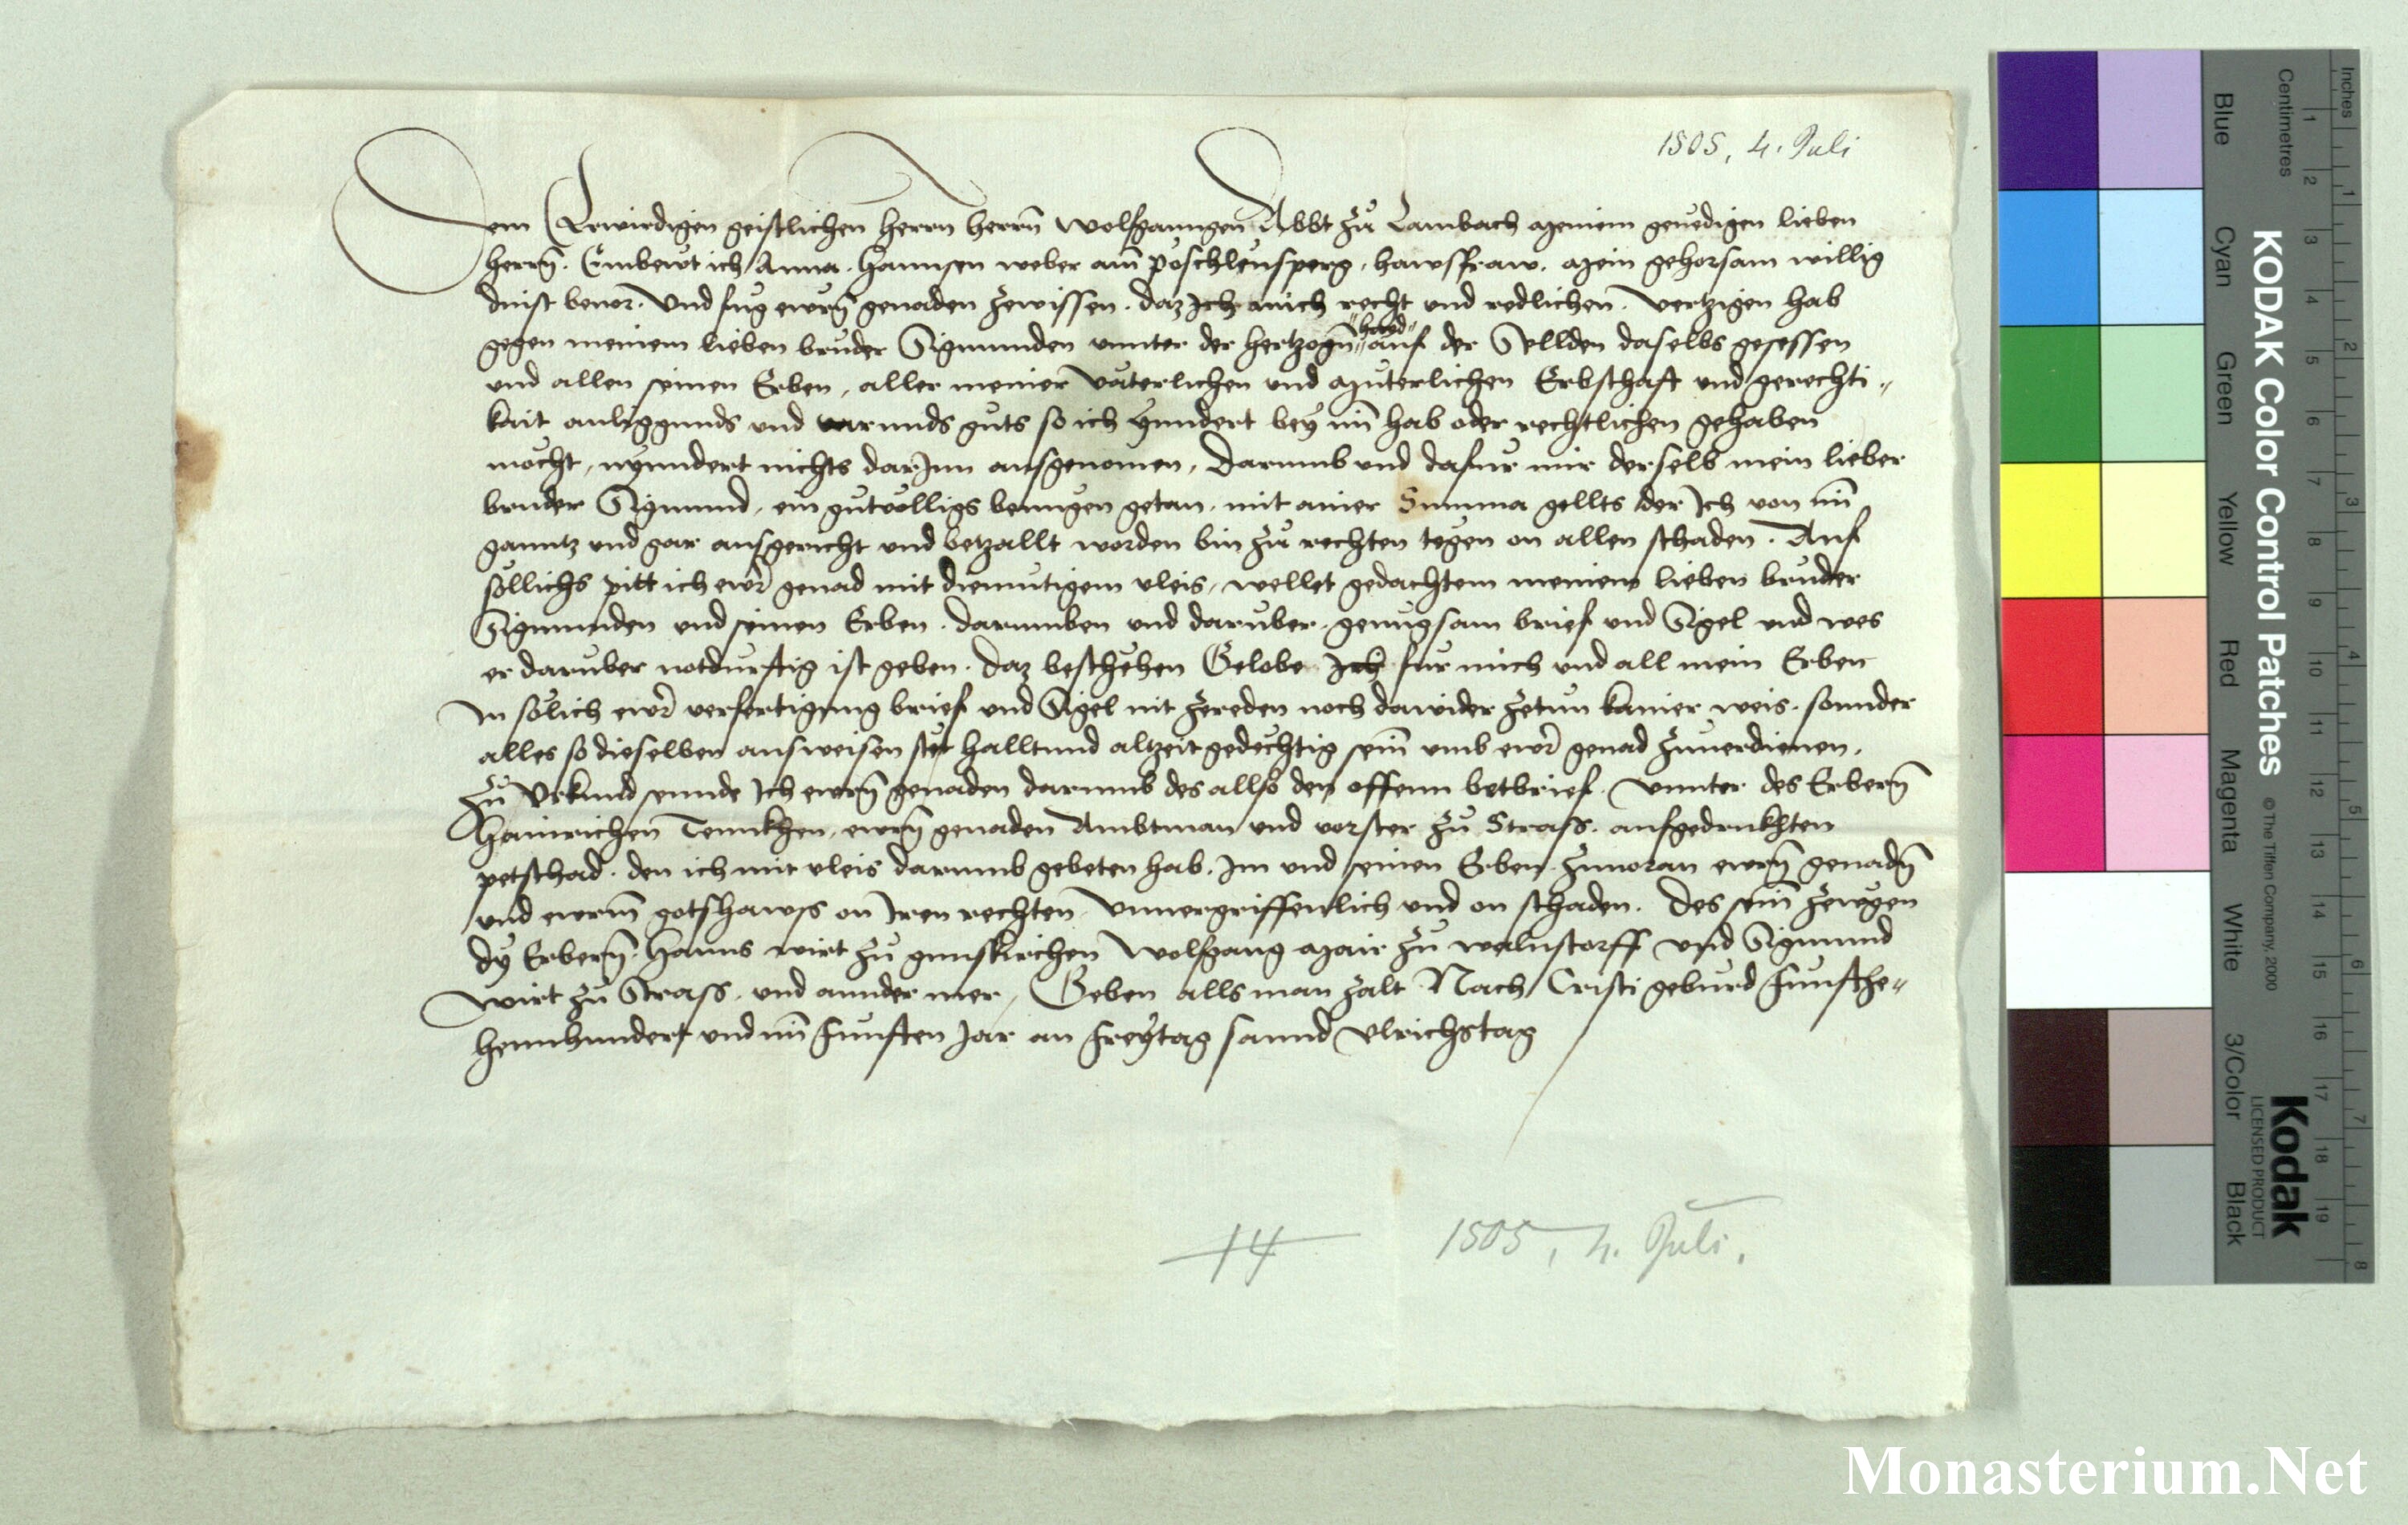 1505, 4. Juli
Dem Erwirdigen geistlichen herrn herrn̄ Wolfganngen Abbt zů Lambach meinem genedigen lieben
herrn̄. Embewt ich Anna. Hannsen weber am̄ pöschlensperg. hawsfraw. mein gehorsam willig
dinst beuor. Vnd fug ewrn̄ genaden zewissen. daz Ich mich recht vnd redlichen. vertzigen hab
gegen meinem lieben bruder Sigmunden vnnter der hertzogn̄ "hayd" auf der Sellden daselbs gesessen
vnd allen seinen Erben, aller meiner väterlichen vnd müterlichen Erbschaft vnd gerechti-
kait anliggunds vnd varunds guts so ich yundert bey im̄ hab oder rechtlichen gehaben
mocht, nyundert nichts darInn ausgenomen, Darumb vnd dafur mir derselb mein lieber
bruder Sigmund, ein gutvölligs benügen getan, mit ainer Summa gellts der Ich von im̄
ganntz vnd gar ausgericht vnd betzallt worden bin zů rechten tegen on allen schaden. Auf
söllichs pitt ich ewr̄ genad mit diemutigem vleis, wellet gedachtem meinem lieben bruder
Sigmunden vnd seinen Erben. darumben vnd daruber. genugsam brief vnd Sigel vnd wes
er daruber notdurftig ist geben. Daz beschehen Gelobe Ich fur mich vnd all mein Erben
In sölich ewr̄ verfertigung brief vnd Sigel nit zereden noch dawider zetun kainer weis. sonnder
alles so dieselben ausweisen stet halltund altzeit gedechtig sein̄ vmb ewr̄ genad zuuerdienen.
Zů Vrkund sennde Ich ewrn̄ genaden darumb des allso den offenn betbrief. Vnnter des Erbern̄
Hainrichen Tennkhen, ewrn̄ genaden Ambtman vnd vorster zů Strass. aufgedrukhten
petschad. den ich mit vleis darumb gebeten hab. Im vnd seinen Erben zuuoran ewrn̄ genadn̄
vnd ewrm̄ gotshawss on Iren rechten Vnuergriffenlich vnd on schaden. Des sein̄ zewgen
dy Erbern̄. Hanns wirt zů gunskirchen Wolfgang mair zů walnstorff vnd Sigmund
Wirt zů Strass. vnd annder mer, Geben alls man zalt Nach Cristi geburd Funftze-
hennhundert vnd im̄ Funften Jar an Freytag sannd Vlrichstag
14 1505, 4. Juli.
Monasterium.Net
KODAK Color Control Patches
© The Tiffen Company, 2000
Kodak
LICENSED PRODUCT
Blue Cyan Green Yellow Red Magenta White 3/Color Black
Inches 1 2 3 4 5 6 7 8
Centimetres 1 2 3 4 5 6 7 8 9 10 11 12 13 14 15 16 17 18 19